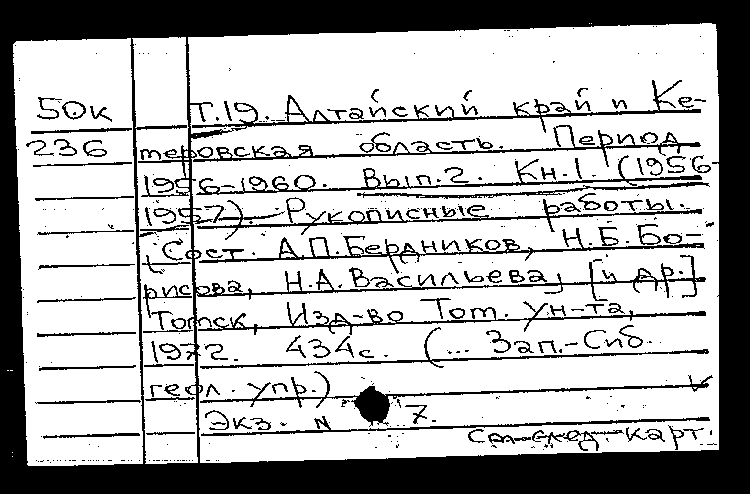 50к Т.19. Алтайский край и Ке-
236 теровская область. Период
1956-1960. Вып.2. Кн.1. (1956-
1957). Рукописные работы.
(Сост. А.П.Бердников, Н.Б.Бо-
рисова, Н.А.Васильева, [и др.]
Томск, Изд-во Том. ун-та,
1972. 434с. (... Зап.-Сиб.
геол. упр.)
Экз. N 7.
См. след. карт.